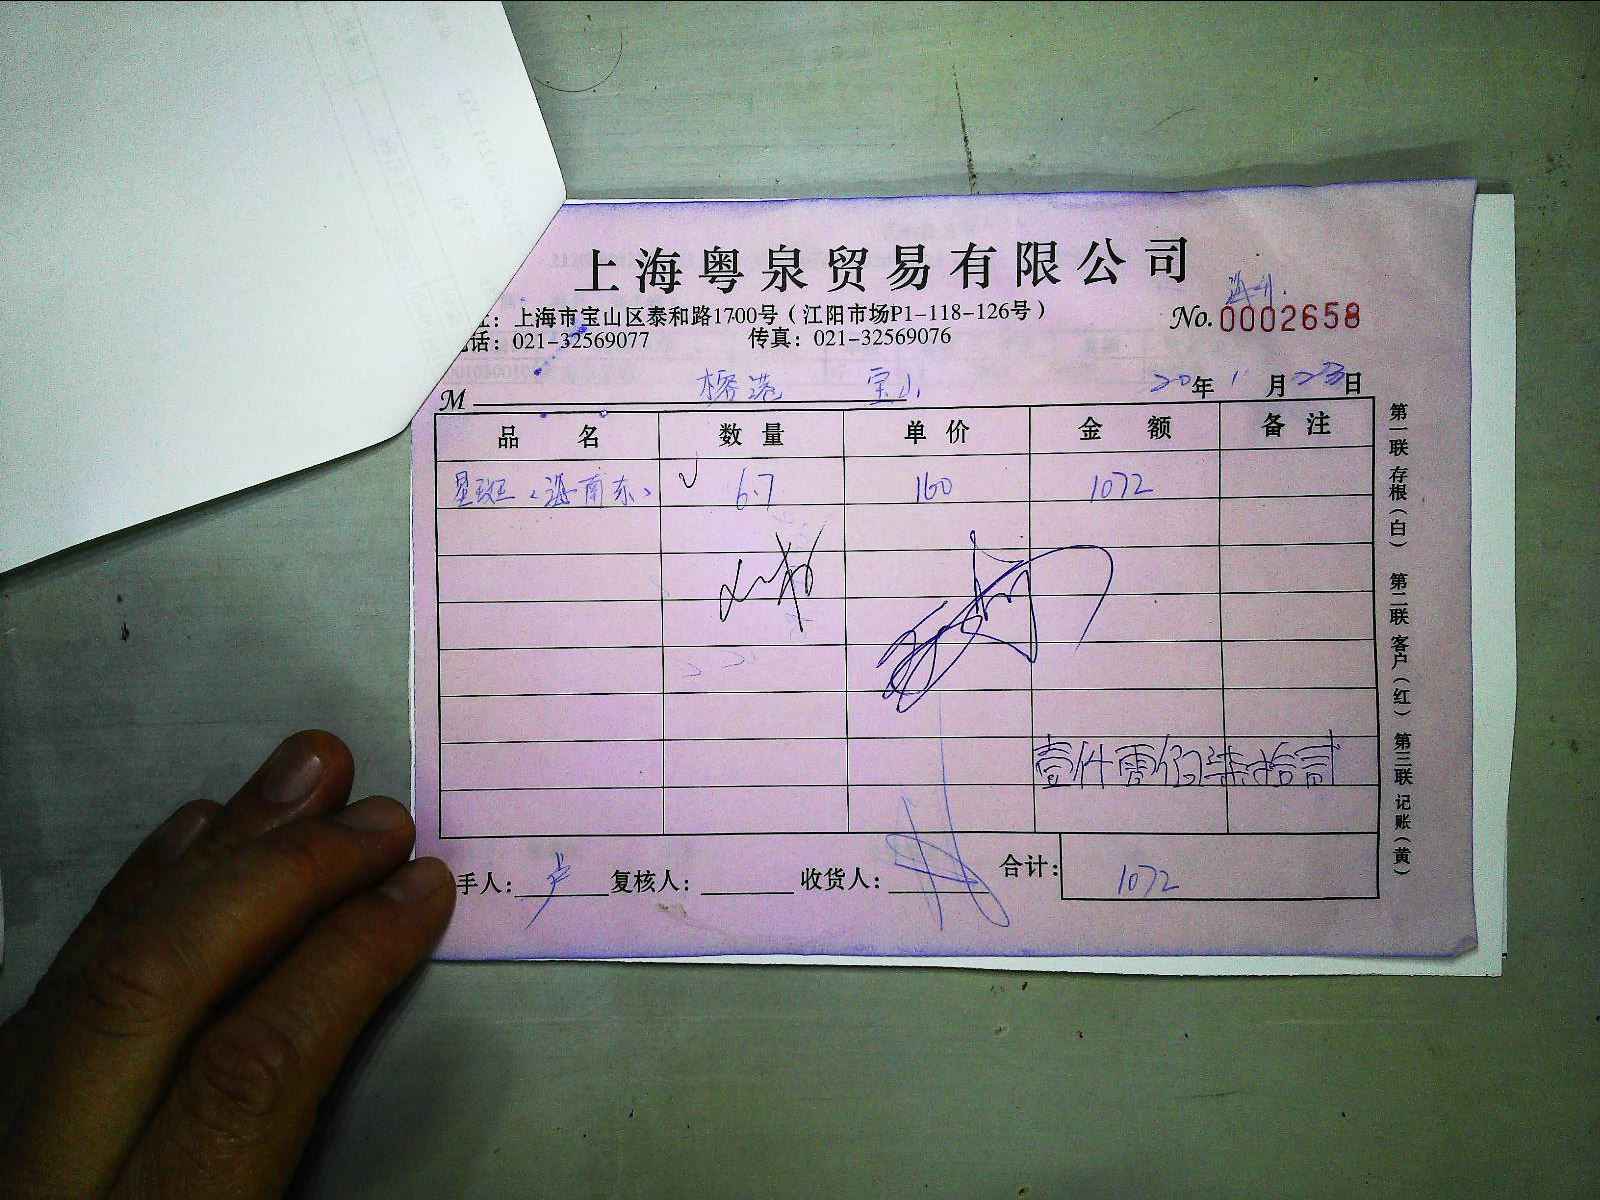 上海粤泉贸易有限公司
址：上海市宝山区泰和路1700号（江阳市场P1-118-126号）
话：021-32569077 传真：021-32569076
No.0002658
M 榕港 宝山 20年11月23日
品名 数量 单价 金额 备注
星斑（海南东） 6.7 160 1072
壹仟零佰柒拾贰
手人：卢 复核人： 收货人： 合计：1072
第一联 存根（白） 第二联 客户（红） 第三联 记账（黄）